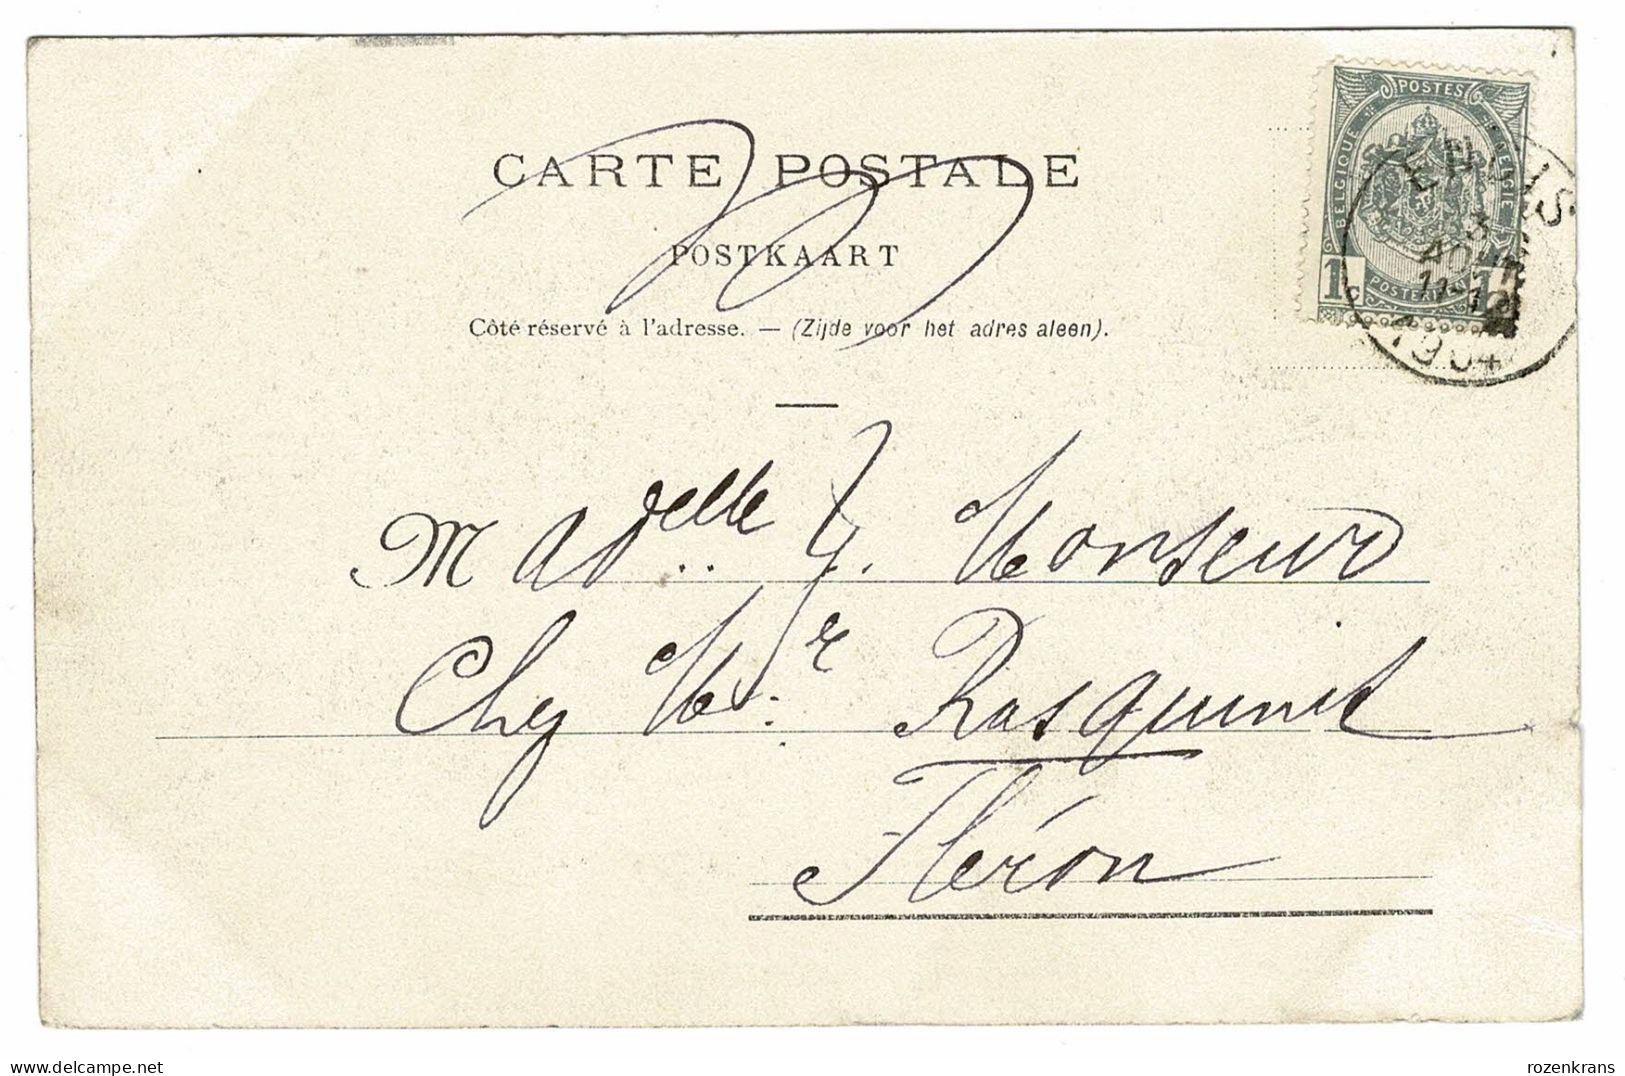 CARTE POSTALE
POSTKAART
Côté réservé à l'adresse. — (Zijde voor het adres aleen).
POSTES
BELGIQUE
BELGIE
1c
POSTERIJEN
1c
ENGIS
3
AOU
11-12
1904
Madelle J. Monseur
Chez Mr Rasquinet
Fléron
delcampe.net
rozenkrans